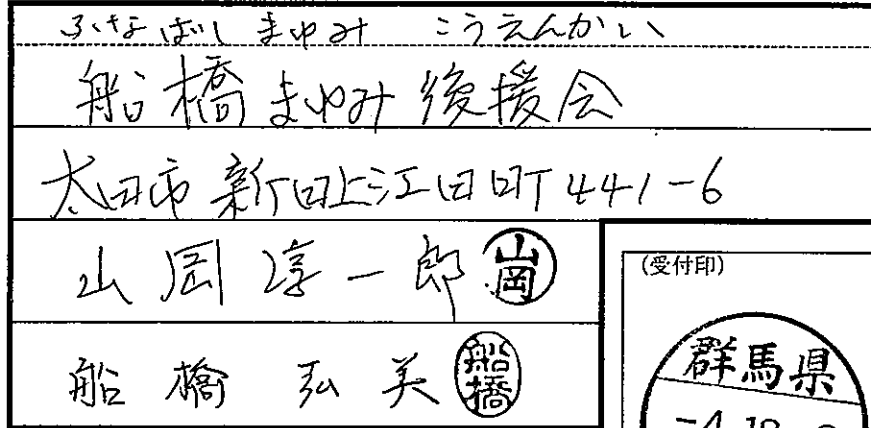 ふなばし まゆみ こうえんかい
船橋まゆみ後援会
太田市新田上江田町441-6
山岡淳一郎 山岡
船橋弘美 船橋
(受付印)
群馬県